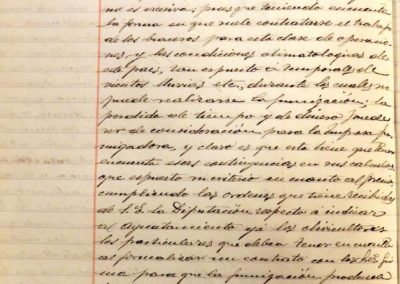 no es excesivo; pues que teniendo en cuenta
la forma en que suele contratarse el trabajo
de los braceros para esta clase de operacio-
nes, y las condiciones climatologicas de
este país, tan espuesto á temporales de
vientos lluvias etc, durante los cuales no
puede realizarse la fumigación; la
perdida de tiempo y de dinero puede
ser de consideración para la empresa fu-
migadora, y claro es que esta tiene que
en cuenta esas contingencias en sus calculos
que espuesto mi criterio en cuanto al precio
cumpliendo las ordenes que tiene recibidas
de S.E. la Diputación respecto á indicar
al Ayuntamiento y á los olivicultores
los particulares que deben tener en cuenta
al formalizar un contrato con los
ma para que la fumigación produzca